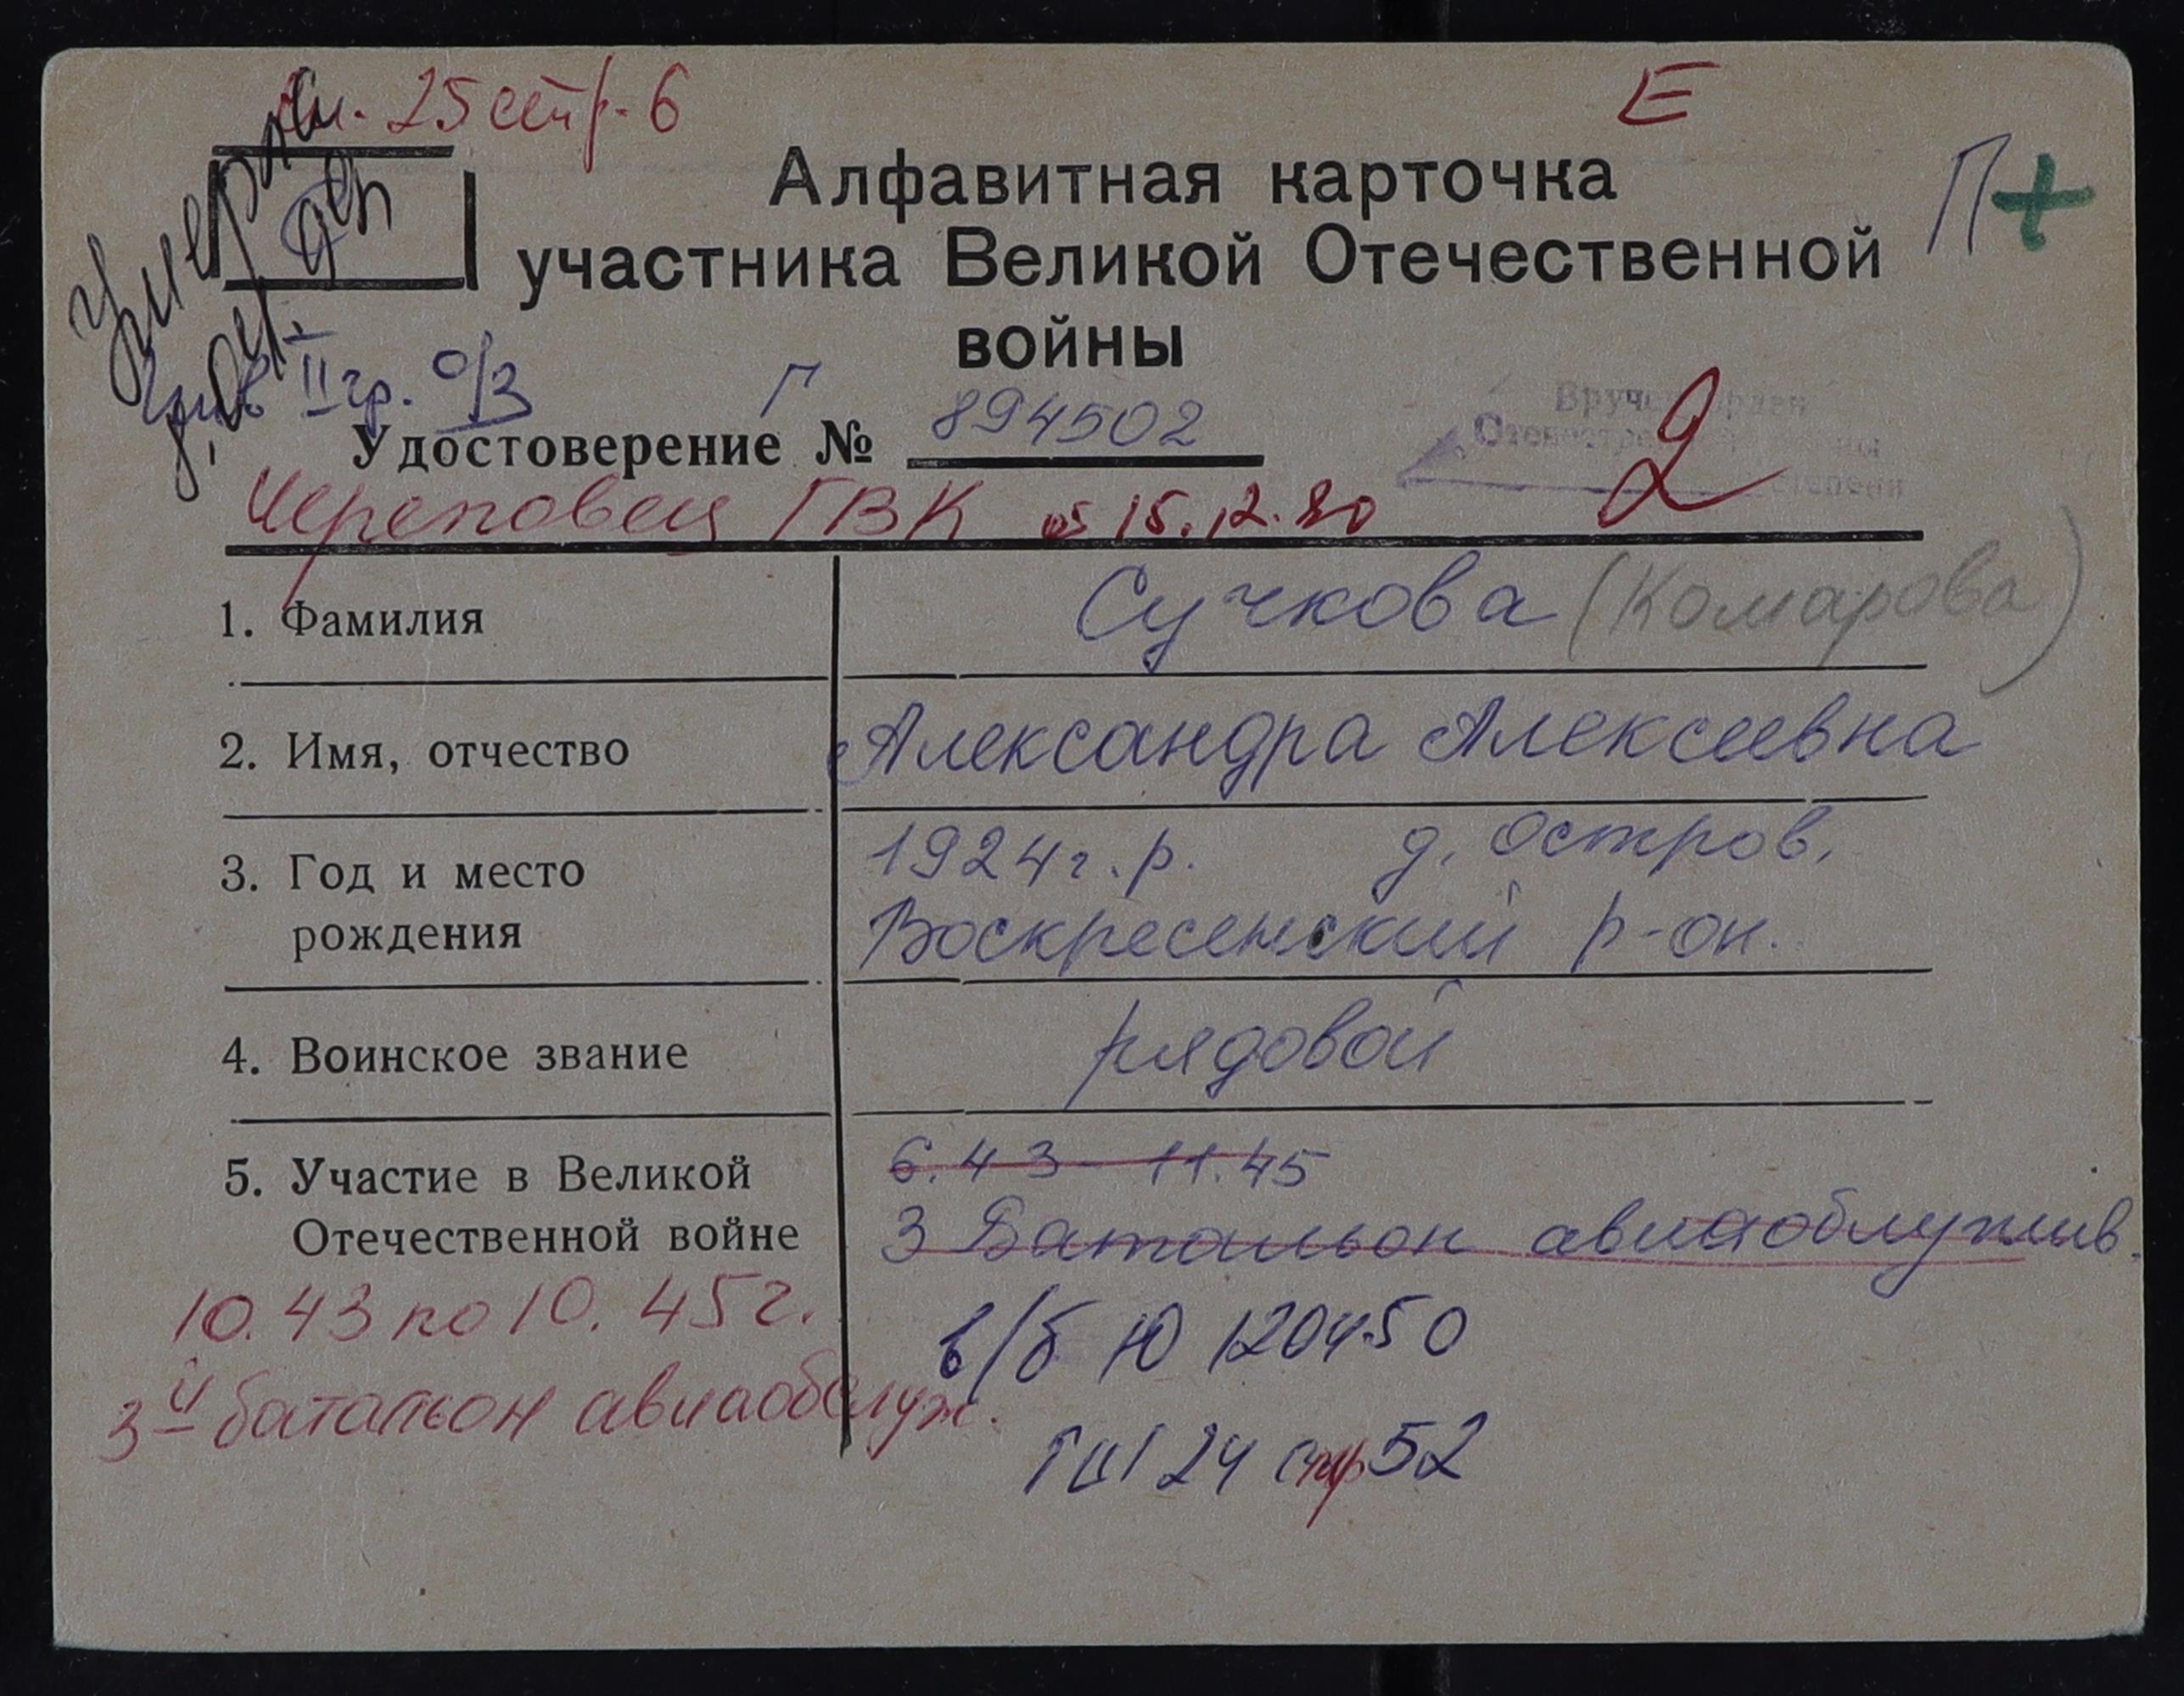 25 стр-6
Е
Умерла
Алфавитная карточка
участника Великой Отечественной
войны
П+
II гр. о/з
Г
Удостоверение № 894502
Вручен орден
Отечественной войны
2 степени
Череповец ГВК от 15.12.80
1. Фамилия Сучкова (Комарова)
2. Имя, отчество Александра Алексеевна
3. Год и место 1924 г.р. д. Остров,
рождения Воскресенский р-он.
4. Воинское звание рядовой
5. Участие в Великой 6.43 - 11.45
Отечественной войне 3 Батальон авиаоблужив.
10.43 по 10.45 г. в/б Ю 120450
3й батальон авиаобслуж.
24 стр 52